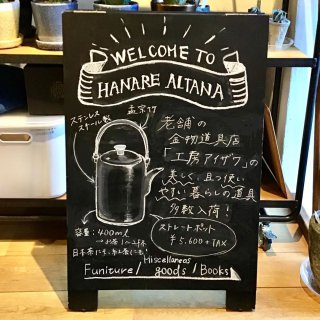 WELCOME TO
HANARE ALTANA
孟宗竹
ステンレス
スチール製
老舗の
金物道具店
「工房アイザワ」の
美しく、且つ使い
やすい暮らしの道具
多数入荷！
ストレートポット
¥5,600+TAX
容量：400ml
日本茶にも、紅茶にも！
Funiture/ Miscellaneas goods / Books